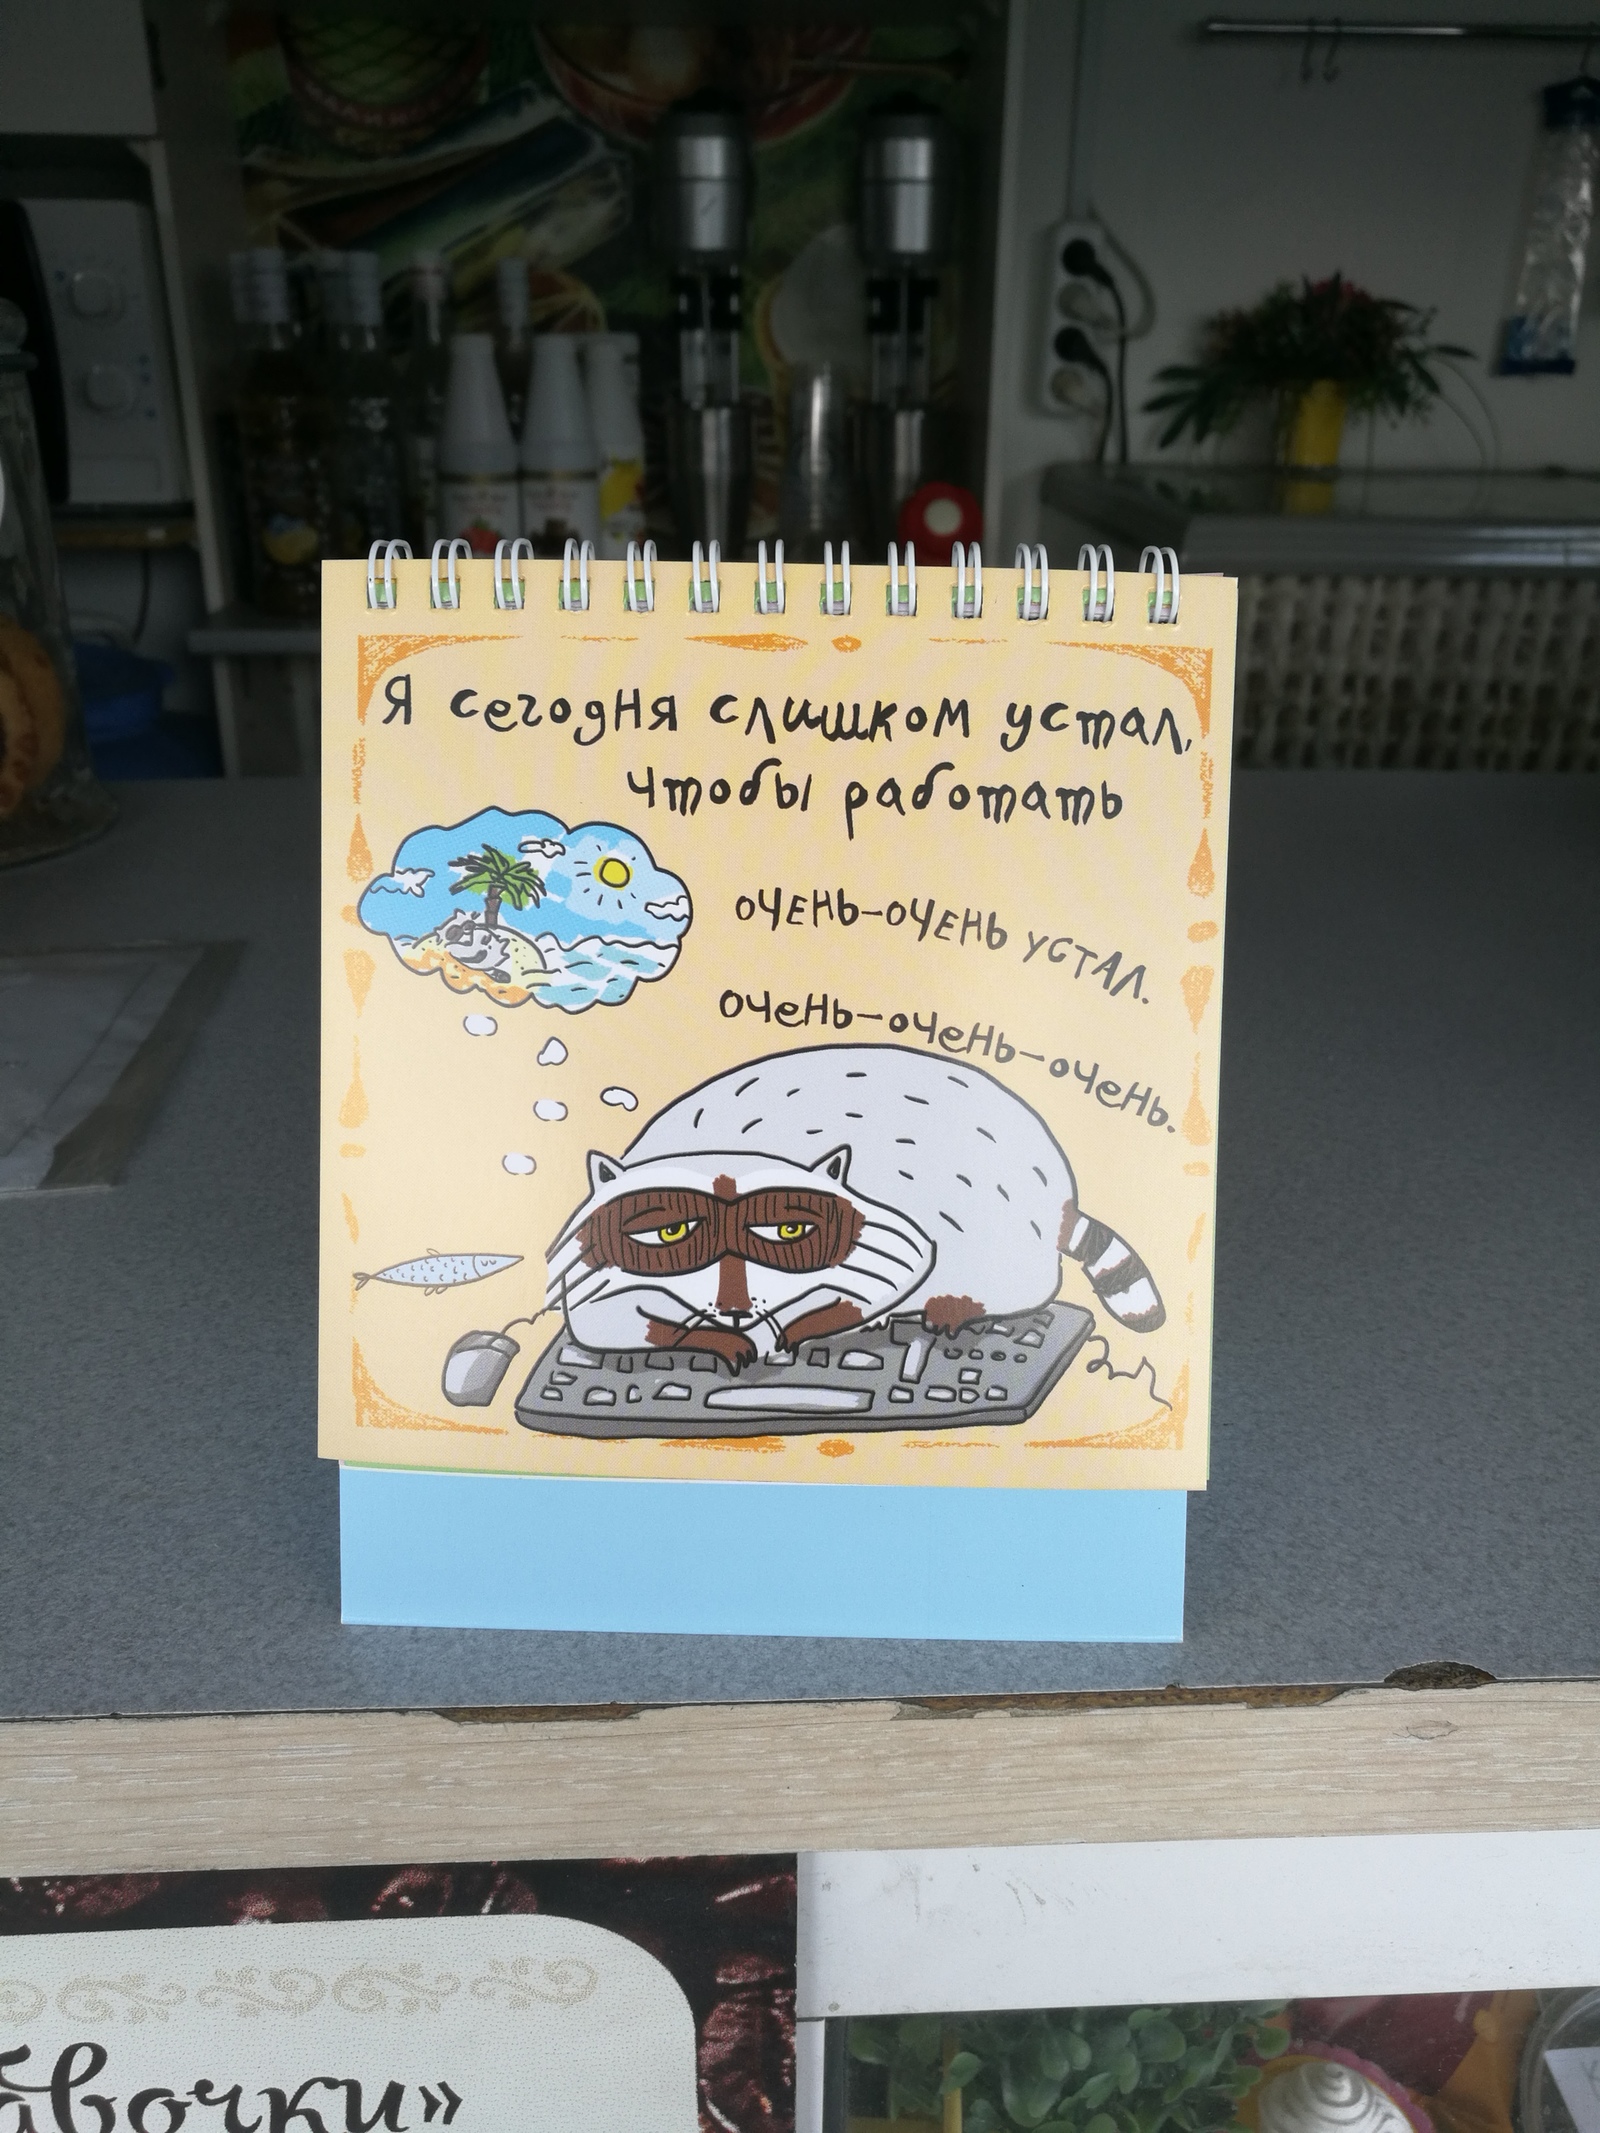 Я сегодня слишком устал,
чтобы работать
ОЧЕНЬ-ОЧЕНЬ УСТАЛ.
очень-очень-очень.
авочки»